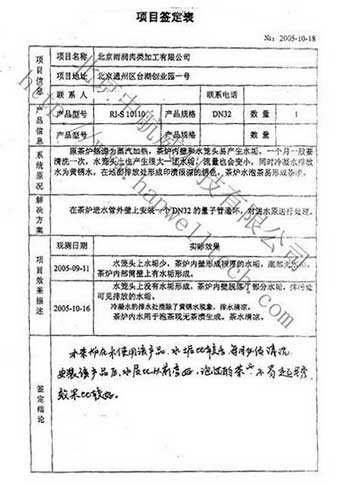 项目签定表
№: 2005-10-18
项目信息
项目名称
北京雨润肉类加工有限公司
项目地址
北京通州区台湖创业园一号
联系人
联系电话
产品信息
产品型号
RJ-S 10110
产品规格
DN32
数量
1
产品型号
产品规格
数量
系统原况
原茶炉热源为蒸汽加热，茶炉内壁和水笼头易产生水垢，一个月一般要
清洗一次，水笼头上也产生很大一团水垢，流量也会变小，同时冷凝水排放
水为黄锈水，在地面排放处形成印渍很深的锈色，茶炉水泡茶易形成茶渍。
解决方案
在茶炉进水管外壁上安装一个DN32的量子管通环，对进水原运行处理。
项目效果描述
观测日期
实际效果
2005-09-11
水笼头上水垢少，茶炉内壁形成很厚的水垢，底部无水垢。
茶炉内部筒壁上有水垢形成。
2005-10-16
水笼头上没有水垢形成，茶炉内壁脱落了部分水垢，排污处
可见排放的水垢。
冷凝水的排水处清除了黄锈水现象，排水清凉。
茶炉内水用于泡茶现无茶渍生成，茶水清凉。
签定结论
本茶炉在未使用该产品，水垢比较多，每月必须清洗
安装该产品后，水质比从前变好，泡过的茶
效果比较好。
北京中航威科技有限公司
www.hangweitech.com